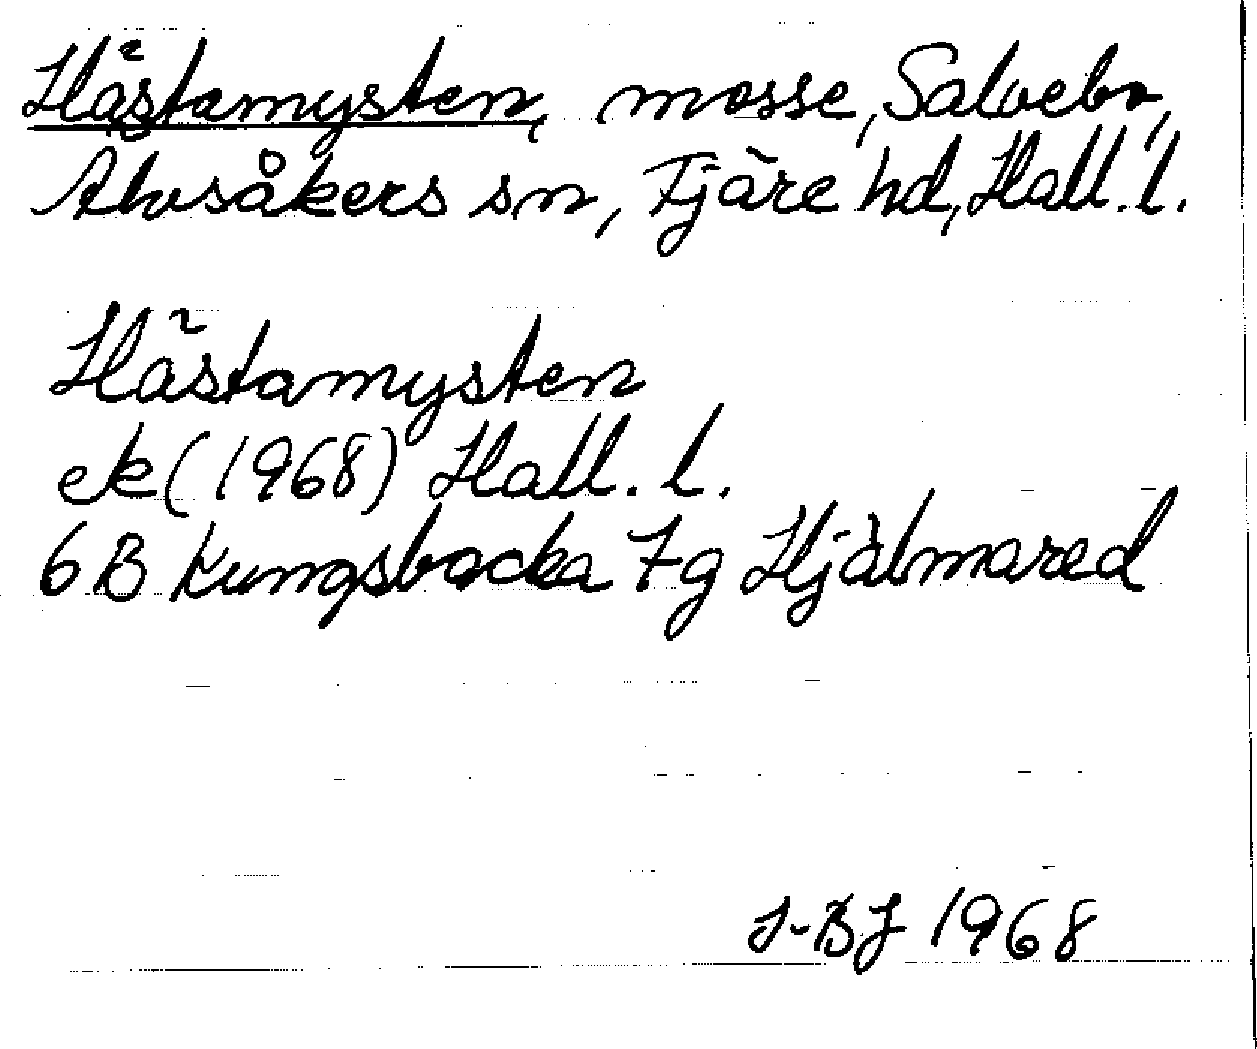 Hästamysten, mosse, Salvebo,
Älvsåkers sn, Fjäre hd, Hall. l.
Hästamysten
ek (1968) Hall. l.
6B Kungsbacka 7g Hjälmared
J-BJ 1968